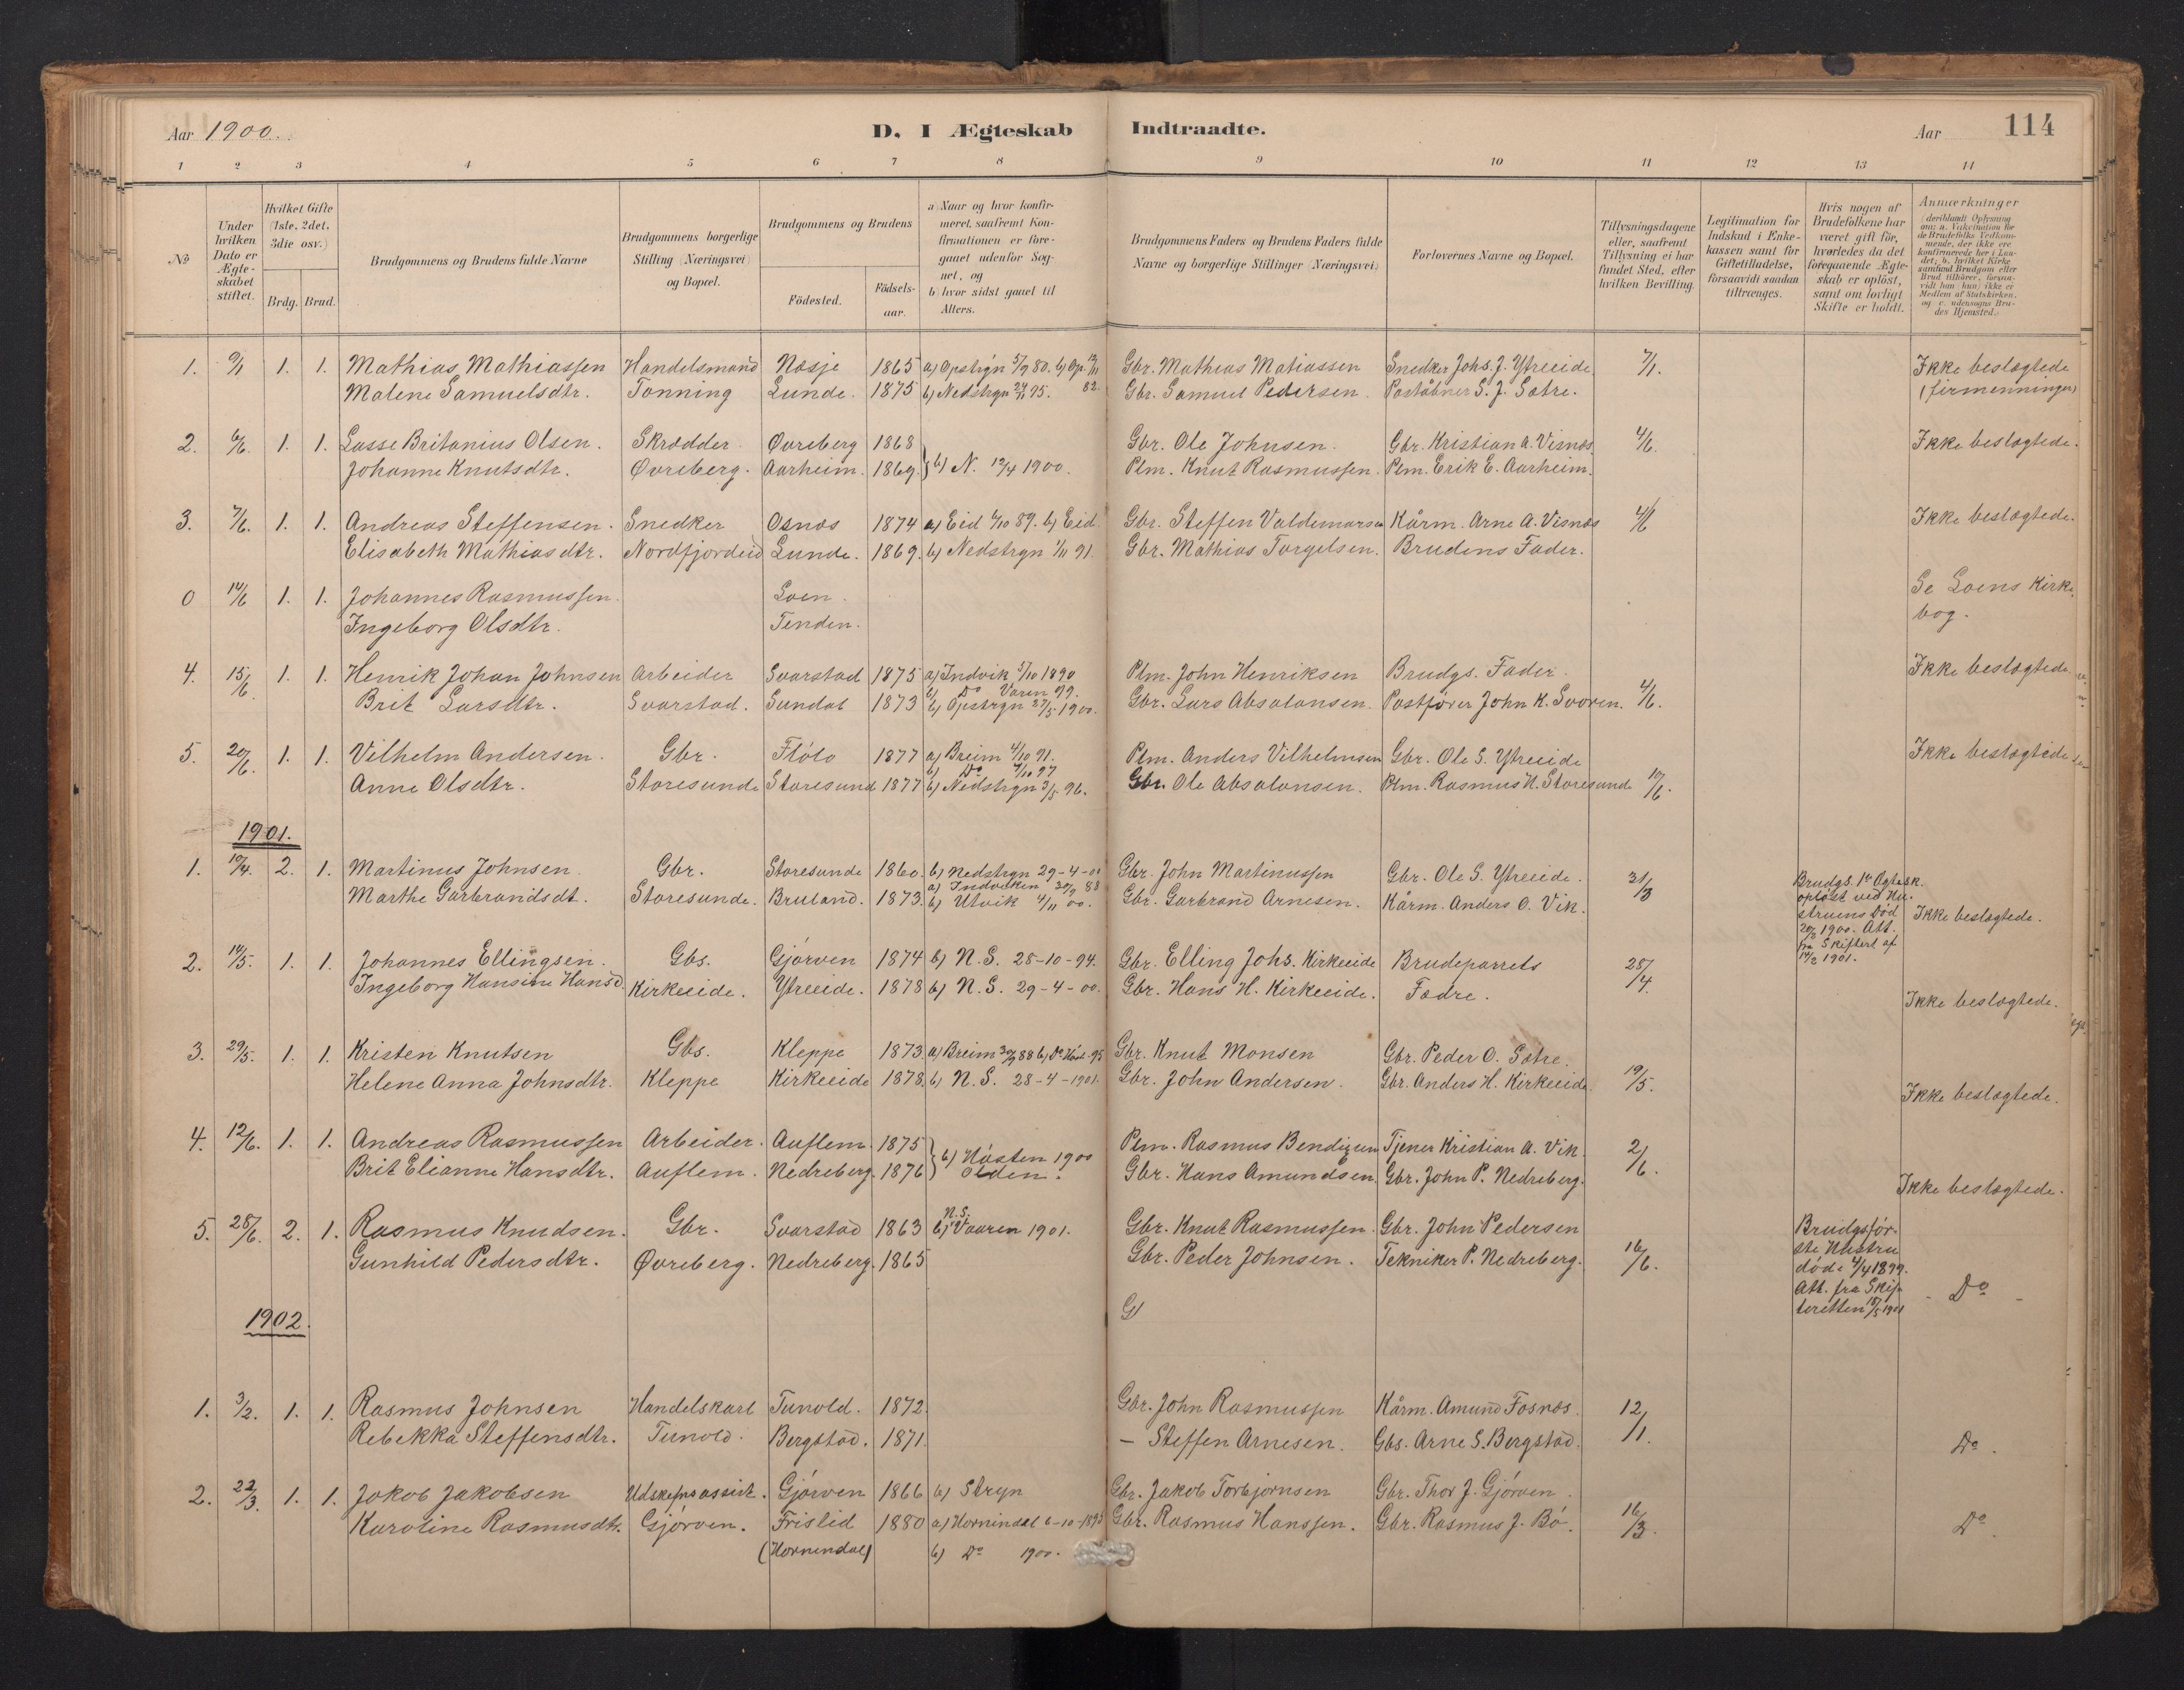 Aar 1900.
D. I Ægteskab Indtraadte.
Aar 114
1 2 3 4 5 6 7 8 9 10 11 12 13 14
№
Under hvilken Dato er Ægteskabet stiftet.
Hvilket Gifte (1ste, 2det, 3die osv.)
Brdg. Brud.
Brudgommens og Brudens fulde Navne
Brudgommens borgerlige Stilling (Næringsvei) og Bopæl.
Brudgommens og Brudens
Födested.
Födsels-aar.
a) Naar og hvor konfirmeret, saafremt Konfirmationen er foregaaet udenfor Sognet, og
b) hvor sidst gaaet til Alters.
Brudgommens Faders og Brudens Faders fulde Navne og borgerlige Stillinger (Næringsvei)
Forlovernes Navne og Bopæl.
Tillysningsdagene eller, saafremt Tillysning ei har fundet Sted, efter hvilken Bevilling.
Legitimation for Indskud i Enkekassen samt for Giftetilladelse, forsaavidt saadan tiltrænges.
Hvis nogen af Brudefolkene har været gift för, hvorledes da det foregaaende Ægteskab er oplöst, samt om lovligt Skifte er holdt.
Anmærkninger (deriblandt Oplysning om: a. Vakcination for de Brudefolks Vedkommende, der ikke ere konfirmerede her i Landet; b. hvilket Kirkesamfund Brudgom eller Brud tilhører, forsaavidt han (hun) ikke er Medlem af Statskirken, og c. udensogns Brudes Hjemsted.)
1. 9/1 1. 1. Mathias Mathiassen Handelsmand Nesje 1865 a) Opstryn 5/9 80. b) Op. Gbr. Mathias Matiassen Snedker Johs. J. Ytreeide 7/1. Ikke beslægtede
Malene Samuelsdtr. Tonning Lunde. 1875 b) Nedstryn 24/11 95. 82. Gbr. Samuel Pedersen. Poståbner S. J. Sætre. (firmenninger)
2. 6/6. 1. 1. Lasse Britanius Olsen. Skrædder Øvreberg 1868 Gbr. Ole Johnsen. Gbr. Kristian A. Visnæs 4/6. Ikke beslægtede.
Johanne Knutsdtr. Øvreberg. Aarheim. 1869. } b) N. 19/4 1900. Plm. Knut Rasmussen. Plm. Erik E. Aarheim.
3. 7/6. 1. 1. Andreas Steffensen. Snedker Osnæs 1874 a) Eid 6/10 89. b) Eid. Gbr. Steffen Valdemarsen Kårm. Arne A. Visnæs 4/6 Ikke beslægtede.
Elisabeth Mathiasdtr. Nordfjordeid Lunde. 1869. b) Nedstryn 1/11 91. Gbr. Mathias Torgelsen. Brudens Fader.
0 14/6 1. 1. Johannes Rasmussen. Loen. Se Loens Kirke
Ingeborg Olsdtr. Tenden. bog.
4. 15/6. 1. 1. Henrik Johan Johnsen Arbeider Svarstad 1875 a) Indvik 5/10 1890 Plm. John Henriksen Brudgs. Fader Ikke beslægtede
b) Do Vaaren 99.
Brit Larsdtr. Svarstad. Sundal 1873 b) Opstryn 27/5 1900. Gbr. Lars Absalonsen. Postfører John K. Svoren. 4/6.
5. 20/6. 1. 1. Vilhelm Andersen. Gbr. Flöto 1877 a) Breim 4/10 91. Plm. Anders Vilhelmsen Gbr. Ole S. Ytreeide Ikke beslægtede
b) Do 9/10 97
Anne Olsdtr. Storesunde Storesund 1877 b) Nedstryn 3/5 96. Gbr. Ole Absalonsen. Plm. Rasmus H. Storesunde 17/6.
1901.
1. 19/4. 2. 1. Martinus Johnsen. Gbr. Storesunde 1860. b) Nedstryn 29-4-00 Gbr. John Martinussen Gbr. Ole S. Ytreeide. 31/3
a) Indviken 30/9 88
Marthe Garbrandsdt. Storesunde. Bruland. 1873. b) Utvik 4/11 00. Gbr. Garbrand Arnesen. Kårm. Anders O. Vik. Ikke beslægtede.
Brudgs. 1te Ægtesk.
opløst ved Hu-
struens Död
20/3 1900. Att.
fra Skifteret af
14/2 1901.
2. 14/5. 1. 1. Johannes Ellingsen. Gbs. Gjörven 1874 b) N.S. 28-10-94. Gbr. Elling Johs. Kirkeeide Brudeparrets 28/4.
Ingeborg Hansine Hansd. Kirkeeide. Ytreeide. 1878 b) N.S. 29-4-00. Gbr. Hans H. Kirkeeide. Fædre. Ikke beslægtede.
3. 29/5. 1. 1. Kristen Knutsen Gbs. Kleppe 1873. a) Breim 30/9 88 b) Do Høst. 95 Gbr. Knut Monsen Gbr. Peder O. Sætre.
Helene Anna Johnsdtr. Kleppe Kirkeeide 1878. b) N.S. 28-4-1901. Gbr. John Andersen. Gbr. Anders H. Kirkeeide 19/5. Ikke beslægtede.
4. 12/6. 1. 1. Andreas Rasmussen Arbeider. Auflem. 1875 Plm. Rasmus Bendixen Tjener Kristian A. Vik. 2/6.
Brit Elianne Hansdtr. Auflem. Nedreberg. 1876 } b) Høsten 1900 Olden. Gbr. Hans Amundsen. Gbr. John P. Nedreberg. Ikke beslægtede.
5. 28/6. 2. 1. Rasmus Knudsen. Gbr. Svarstad 1863 b) N.S. Vaaren 1901. Gbr. Knut Rasmussen. Gbr. John Pedersen 16/6.
Gunhild Pedersdtr. Øvreberg. Nedreberg. 1865 Gbr. Peder Johnsen. Tekniker P. Nedreberg.
Brudgs før-
ste Hustru
døde 4/4 1899.
Att. fra Skif-
teretten 18/5 1901 - Do -
1902. G
1. 3/2. 1. 1. Rasmus Johnsen Handelskarl Tunold. 1872 Gbr. John Rasmussen Kårm. Amund Fosnæs. 12/1.
Rebekka Steffensdtr. Tunold. Bergstad. 1871. – Steffen Arnesen. Gbs. Arne S. Bergstad. Do.
2. 22/3. 1. 1. Jakob Jakobsen Udskiftnsassist. Gjörven 1866 b) Stryn Gbr. Jakob Torbjørnsen Gbr. Thor J. Gjörven.
Karoline Rasmusdtr. Gjörven. Frislid 1880 a) Hornindal 6-10-1895 Gbr. Rasmus Hanssen. Gbr. Rasmus J. Bö. 16/3. Do.
(Hornindal) b) Do 1900.